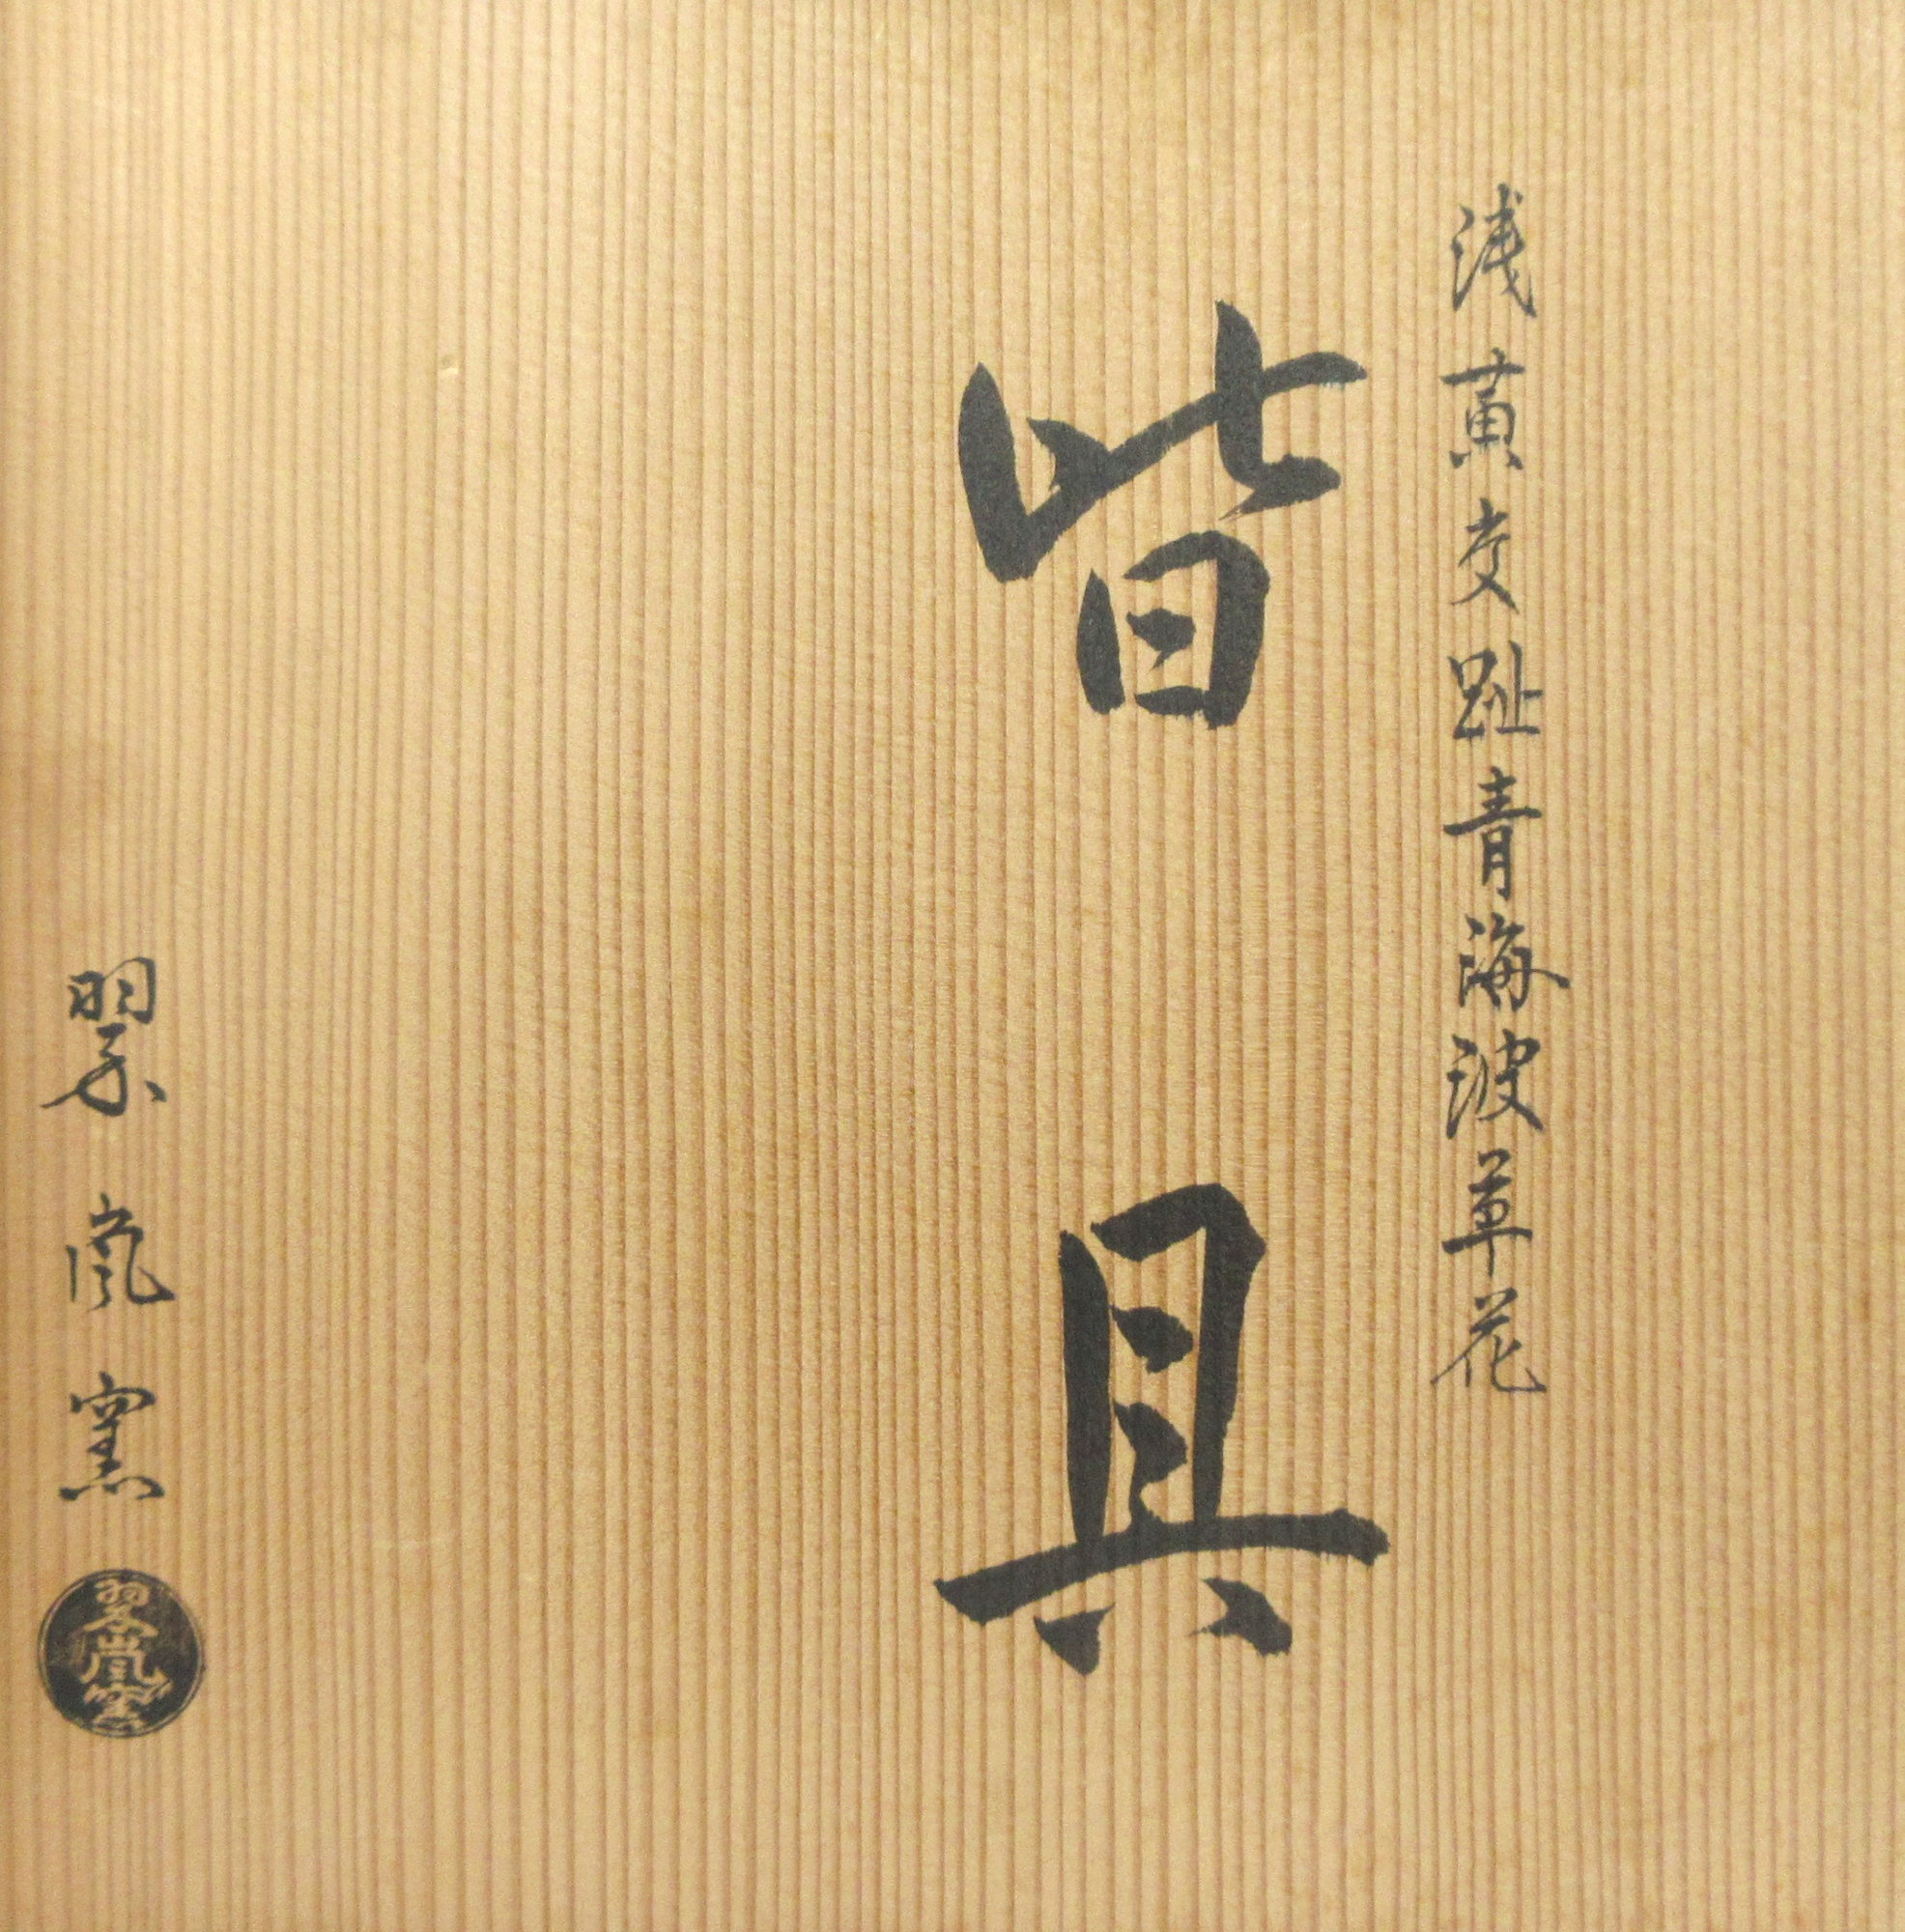 浅黄交趾青海波草花
皆具
翠嵐窯
翠嵐窯